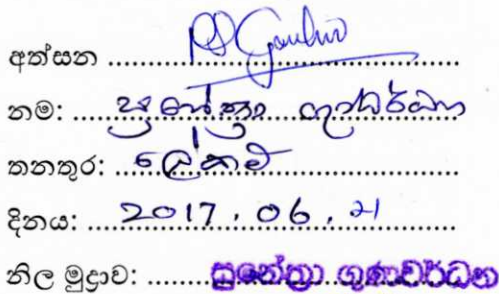 අත්සන ..........
නම: සුනේත්‍රා ගුණවර්ධන
තනතුර: ලේකම්
දිනය: 2017.06.21
නිල මුද්‍රාව: සුනේත්‍රා ගුණවර්ධන